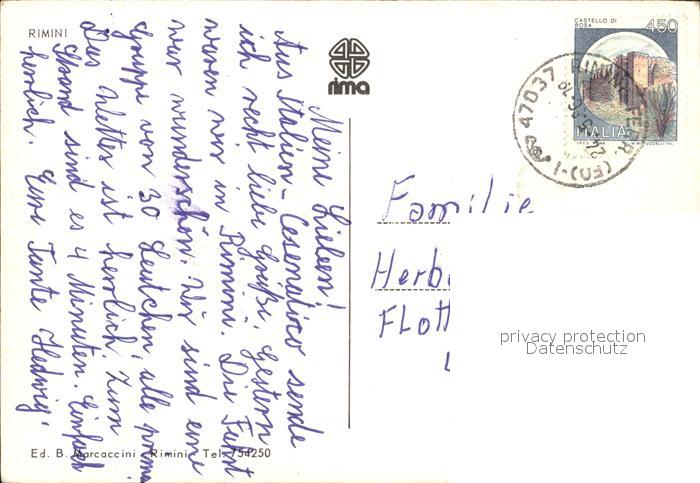 RIMINI
rima
Meine Lieben!
Aus Italien - Cesenatico sende
ich recht liebe Grüße. Gestern
waren wir in Rimini. Die Fahrt
war wunderschön. Wir sind eine
Gruppe von 30 Leutchen, alle prima.
Das Wetter ist herrlich. Zum
Strand sind es 4 Minuten. Einfach
herrlich. Eure Tante Hedwig.
Ed. B. Marcaccini - Rimini - Tel. 754250
CASTELLO DI
BOSA
450
ITALIA
47037 RIMINI FERR. (FO)
Familie
Herb
Flott
privacy protection
Datenschutz